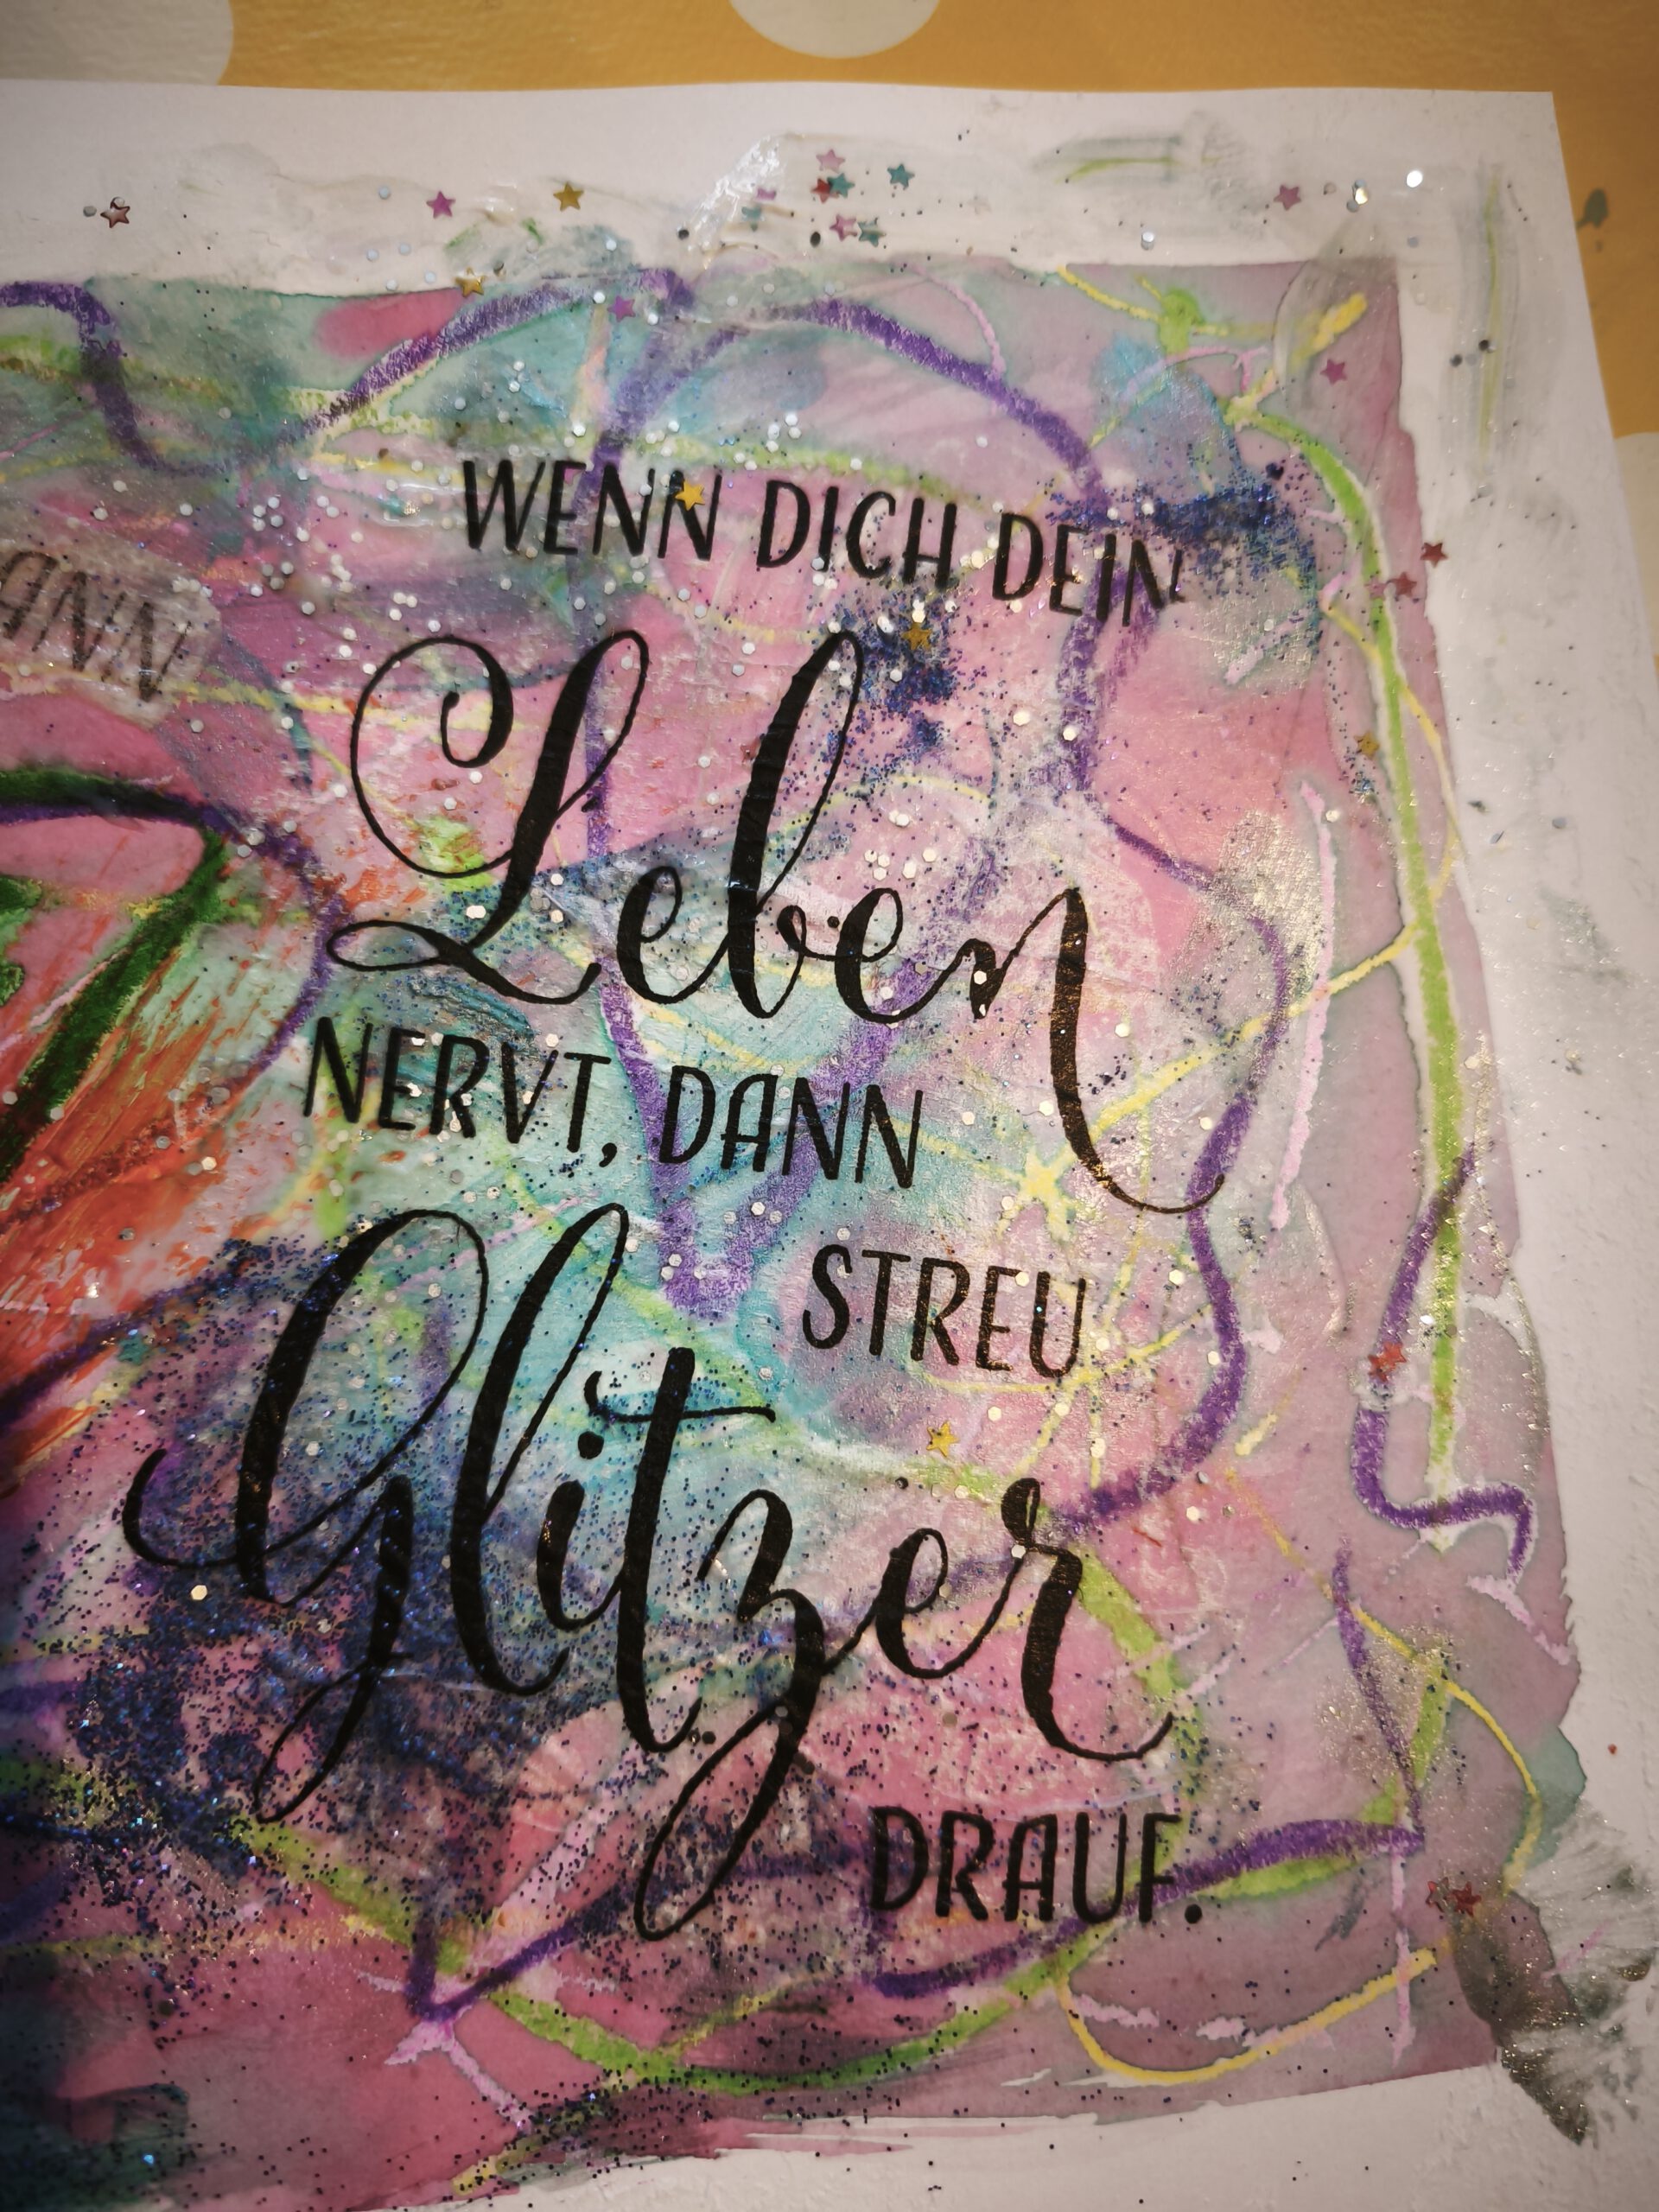 WENN DICH DEIN
Leben
NERVT, DANN
STREU
Glitzer
DRAUF.
ANN